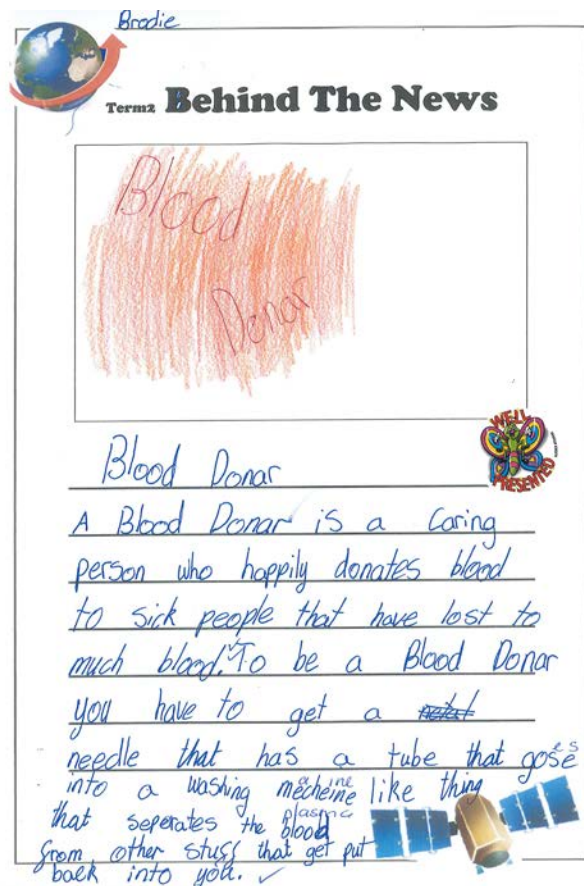 Brodie
Term2 Behind The News
Blood
Donar
WELL
PRESENTED
Blood Donar
A Blood Donar is a Caring
person who happily donates blood
to sick people that have lost to
much blood. To be a Blood Donar
you have to get a
needle that has a tube that goses
into a washing mecheine like thing
that seperates the blood plasma
from other stuff that get put
back into you.